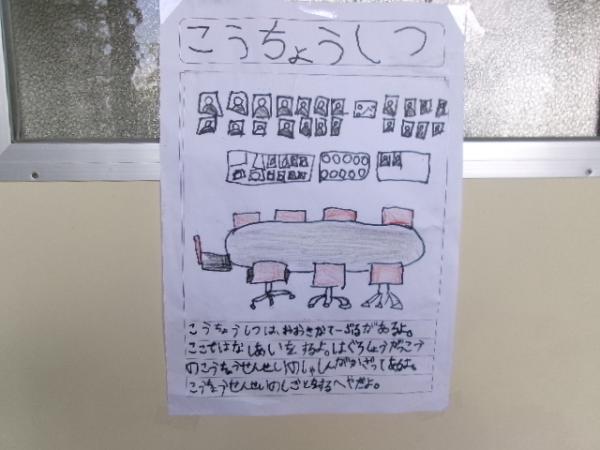 こうちょうしつ
こうちょうしつは、おおきなてーぶるがあるよ。
ここではなしあいをするよ。はぐろしょうがっこう
のこうちょうせんせいのしゃしんがかざってあるよ。
こうちょうせんせいのしごとをするへやだよ。